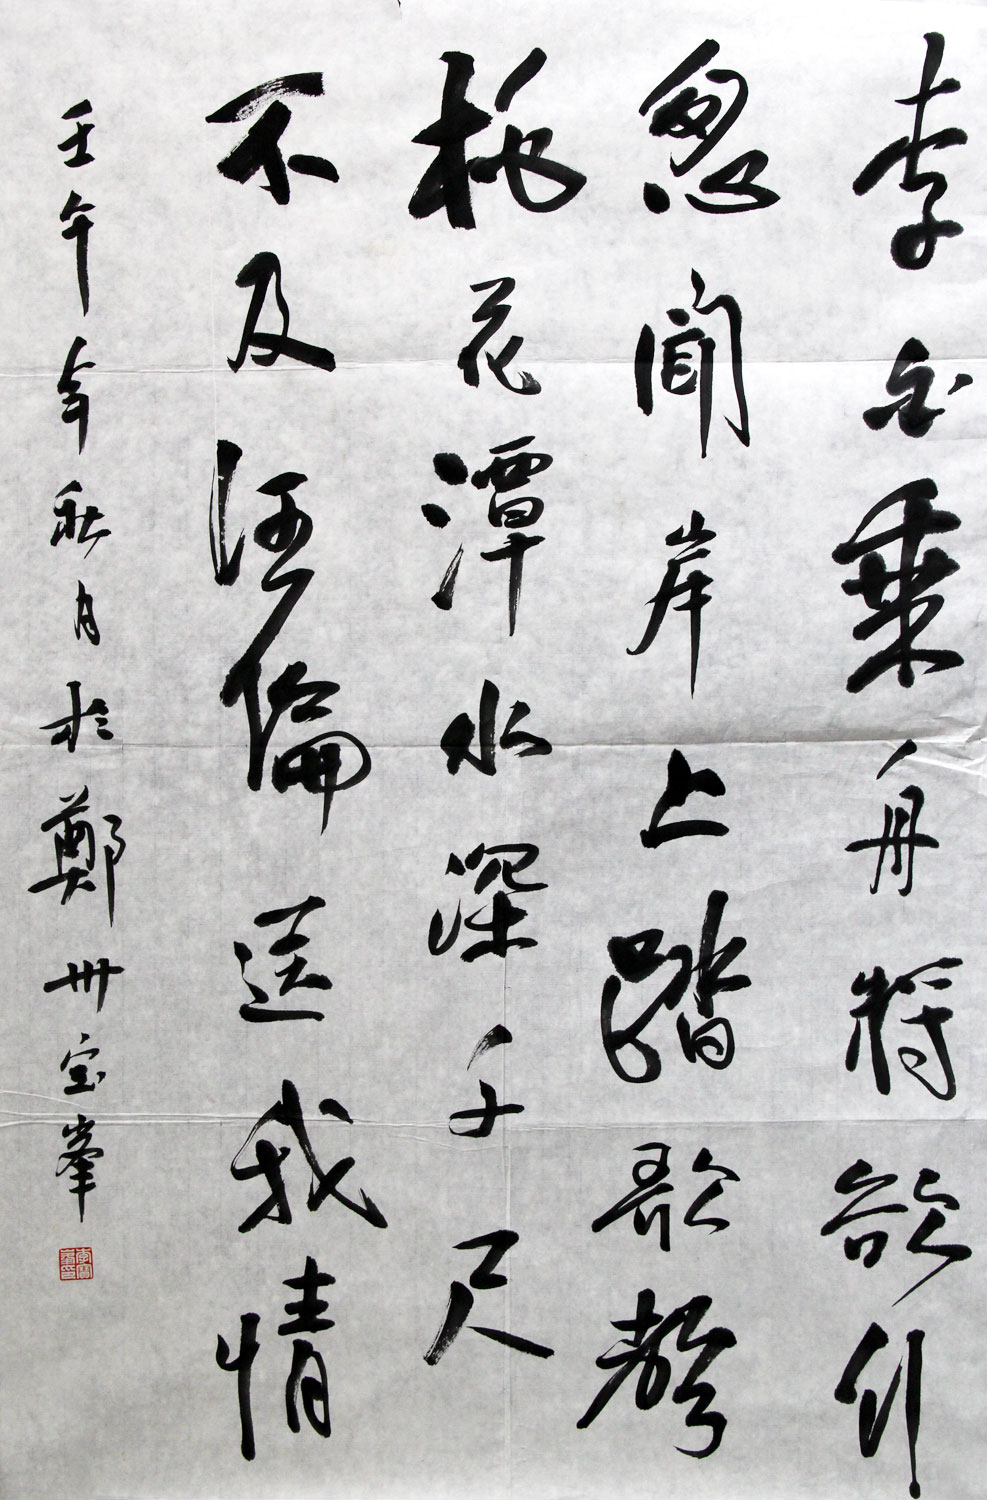 李白乘舟將欲行
忽聞岸上踏歌聲
桃花潭水深千尺
不及汪倫送我情
壬午年秋月於鄭州宝峯